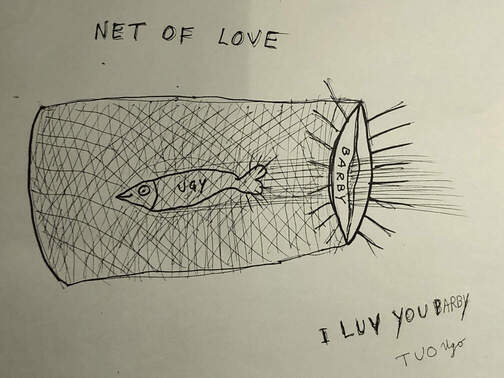 NET OF LOVE
UGY
BARBY
I LUV YOU BARBY
TUO Ugo